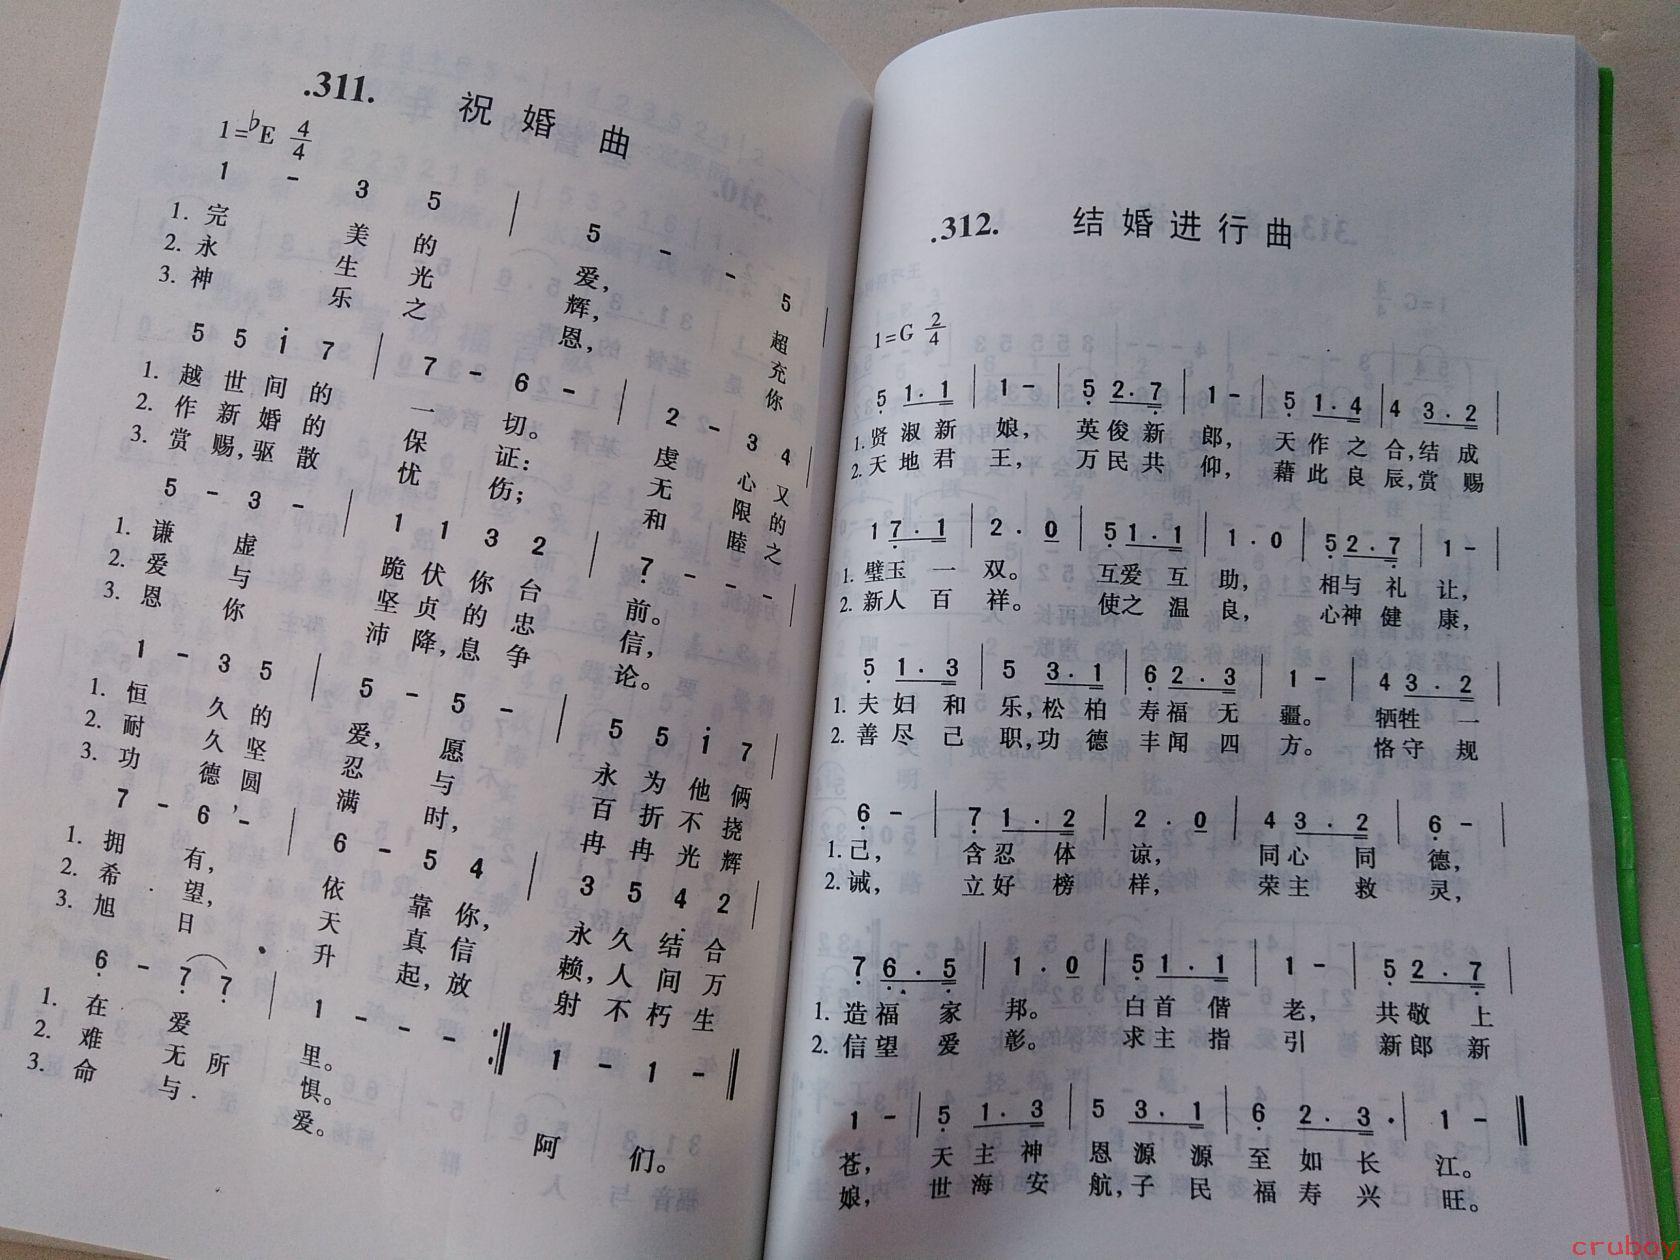 .311. 祝婚曲
1=♭E 4/4
1 - 3 5 | 5 - - 5 |
1. 完 美 的 爱, 超
2. 永 生 光 辉, 充
3. 神 乐 之 恩, 你
5 5 i 7 | 7 - 6 - | 2 - 3 4 |
1. 越 世 间 的 一 切。 虔 心 又
2. 作 新 婚 的 保 证: 无 限 的
3. 赏 赐,驱 散 忧 伤; 和 睦 之
5 - 3 - | 1 1 3 2 | 7̣ - - - |
1. 谦 虚 跪 伏 你 台 前。
2. 爱 与 坚 贞 的 忠 信,
3. 恩 你 沛 降,息 争 论。
1 - 3 5 | 5 - 5 - | 5 5 i 7 |
1. 恒 久 的 爱, 愿 永 为 他 俩
2. 耐 久 坚 忍 与 百 折 不 挠
3. 功 德 圆, 满 时, 冉 冉 光 辉
7 - 6 - | 6 - 5 4 | 3 5 4 2 |
1. 拥 有, 依 靠 你, 永 久 结 合
2. 希 望, 天 真 信 赖,人 间 万
3. 旭 日 升 起, 放 射 不 朽 生
6̣ - 7̣ 7̣ | 1 - - - :‖ 1 - 1 - ‖
1. 在 爱 里。 阿 们。
2. 难 无 所 惧。
3. 命 与 爱。
.312. 结婚进行曲
1=G 2/4
5̣ 1 . 1 | 1 - | 5̣ 2 . 7̣ | 1 - | 5̣ 1 . 4 | 4 3 . 2 |
1. 贤 淑 新 娘, 英 俊 新 郎, 天 作 之 合,结 成
2. 天 地 君 王, 万 民 共 仰, 藉 此 良 辰,赏 赐
1 7̣ . 1 | 2 . 0 | 5̣ 1 . 1 | 1 . 0 | 5̣ 2 . 7̣ | 1 - |
1. 璧玉 一 双。 互爱 互 助, 相与 礼 让,
2. 新人 百 祥。 使之 温 良, 心神 健 康,
5̣ 1 . 3 | 5 3 . 1 | 6̣ 2 . 3 | 1 - | 4 3 . 2 |
1. 夫 妇 和 乐,松 柏 寿 福 无 疆。 牺牲 一
2. 善 尽 己 职,功 德 丰 闻 四 方。 恪守 规
6̣ - | 7̣ 1 . 2 | 2 . 0 | 4 3 . 2 | 6̣ - |
1. 己, 含 忍 体 谅, 同心 同 德,
2. 诫, 立好 榜 样, 荣主 救 灵,
7̣ 6̣ . 5̣ | 1 . 0 | 5̣ 1 . 1 | 1 - | 5̣ 2 . 7̣ |
1. 造福 家 邦。 白首 偕 老, 共敬 上
2. 信望 爱 彰。 求主 指 引 新郎 新
1 - | 5̣ 1 . 3 | 5 3 . 1 | 6̣ 2 . 3 | 1 - ‖
苍, 天 主 神 恩 源 源 至 如 长 江。
娘, 世 海 安 航,子 民 福 寿 兴 旺。
cruboy